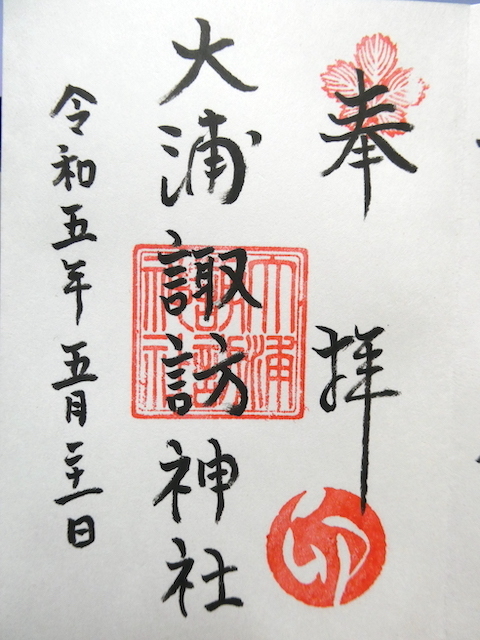 奉拝
大浦諏訪神社
令和五年五月二十一日
大浦
諏訪
神社
卯